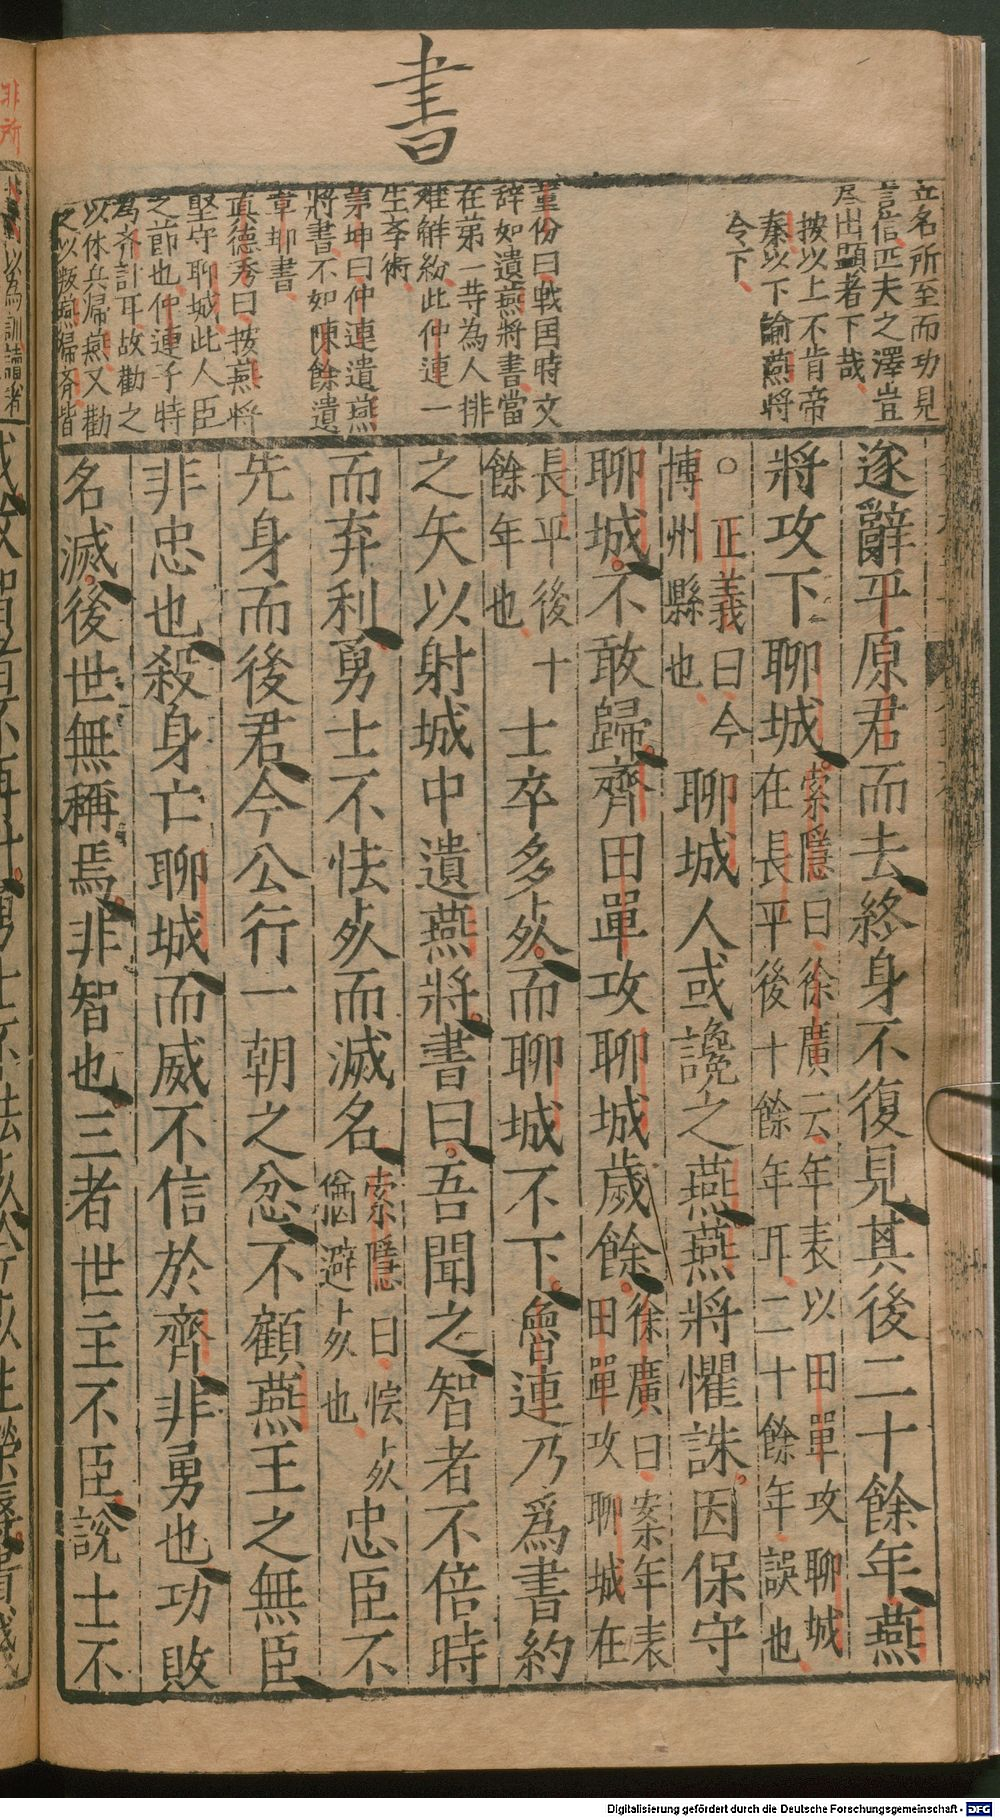 書
立名所至而功見
言信匹夫之澤豈
尽出顕者下哉
按以上不肯帝
秦以下論燕將
令下
董份曰戦国時文
辞如遺燕將書當
在第一等為人排
难解紛此仲連一
生夲術
第坤曰仲連遺燕
將書不如陳餘遺
章邯書
真徳秀曰按燕將
堅守聊城此人臣
之節也仲連予特
為齐計耳故勸之
以休兵帰燕又勸
之以叛燕帰齐皆
遂辭平原君而去終身不復見其後二十餘年燕
將攻下聊城索隱曰徐廣云年表以田單攻聊城
在長平後十餘年耳二十餘年誤也
○正義曰今
博州縣也
聊城人或讒之燕燕將懼誅因保守
聊城不敢歸齊田單攻聊城歲餘徐廣曰案年表
田單攻聊城在
長平後十
餘年也
士卒多死而聊城不下魯連乃爲書約
之矢以射城中遺燕將書曰吾聞之智者不倍時
而弃利勇士不怯死而滅名索隱曰怯死
猶避死也
忠臣不
先身而後君今公行一朝之忿不顧燕王之無臣
非忠也殺身亡聊城而威不信於齊非勇也功敗
名滅後世無稱焉非智也三者世主不臣說士不
Digitalisierung gefördert durch die Deutsche Forschungsgemeinschaft - DFG